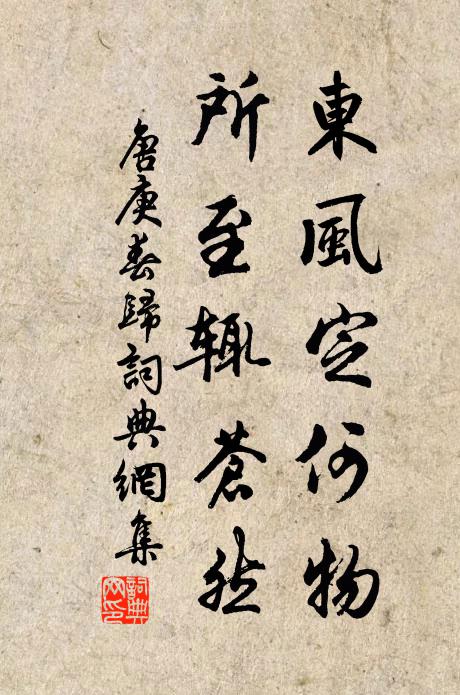 東風定何物
所至輒蒼然
唐庚春歸詞典網集
詞典網印